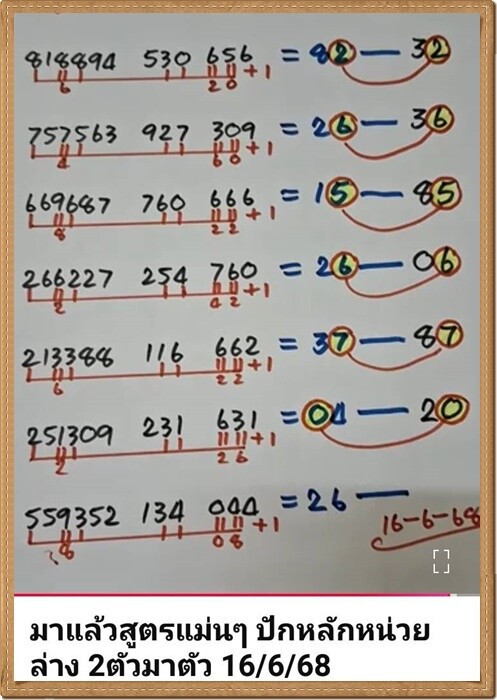 818894 530 656 = 82 — 32
6 2 0 +1
757563 927 309 = 26 — 36
4 6 0 +1
669687 760 666 = 15 — 85
8 2 2 +1
266227 254 760 = 26 — 06
2 4 2 +1
213388 116 662 = 37 — 87
6 2 2 +1
251309 231 631 = 04 — 20
2 2 6 +1
559352 134 044 = 26 —
8 0 8 +1
16-6-68
มาแล้วสูตรแม่นๆ ปักหลักหน่วย
ล่าง 2ตัวมาตัว 16/6/68